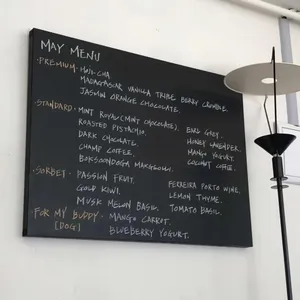 May Menu
·Premium· Hoji-cha
Madagascar Vanilla Triple Berry Crumble
Jasmin Orange Chocolate
·Standard· Mint Royal (Mint Chocolate). Earl Grey.
Roasted Pistachio. Honey Lavender.
Dark Chocolate. Mango Yogurt.
Champ Coffee. Coconut Coffee.
Boksoondoga Makgeolli.
·Sorbet· Passion Fruit. Ferreira Porto Wine.
Gold Kiwi. Lemon Thyme.
Musk Melon Basil. Tomato Basil.
For My Buddy· Mango Carrot.
[Dog] Blueberry Yogurt.